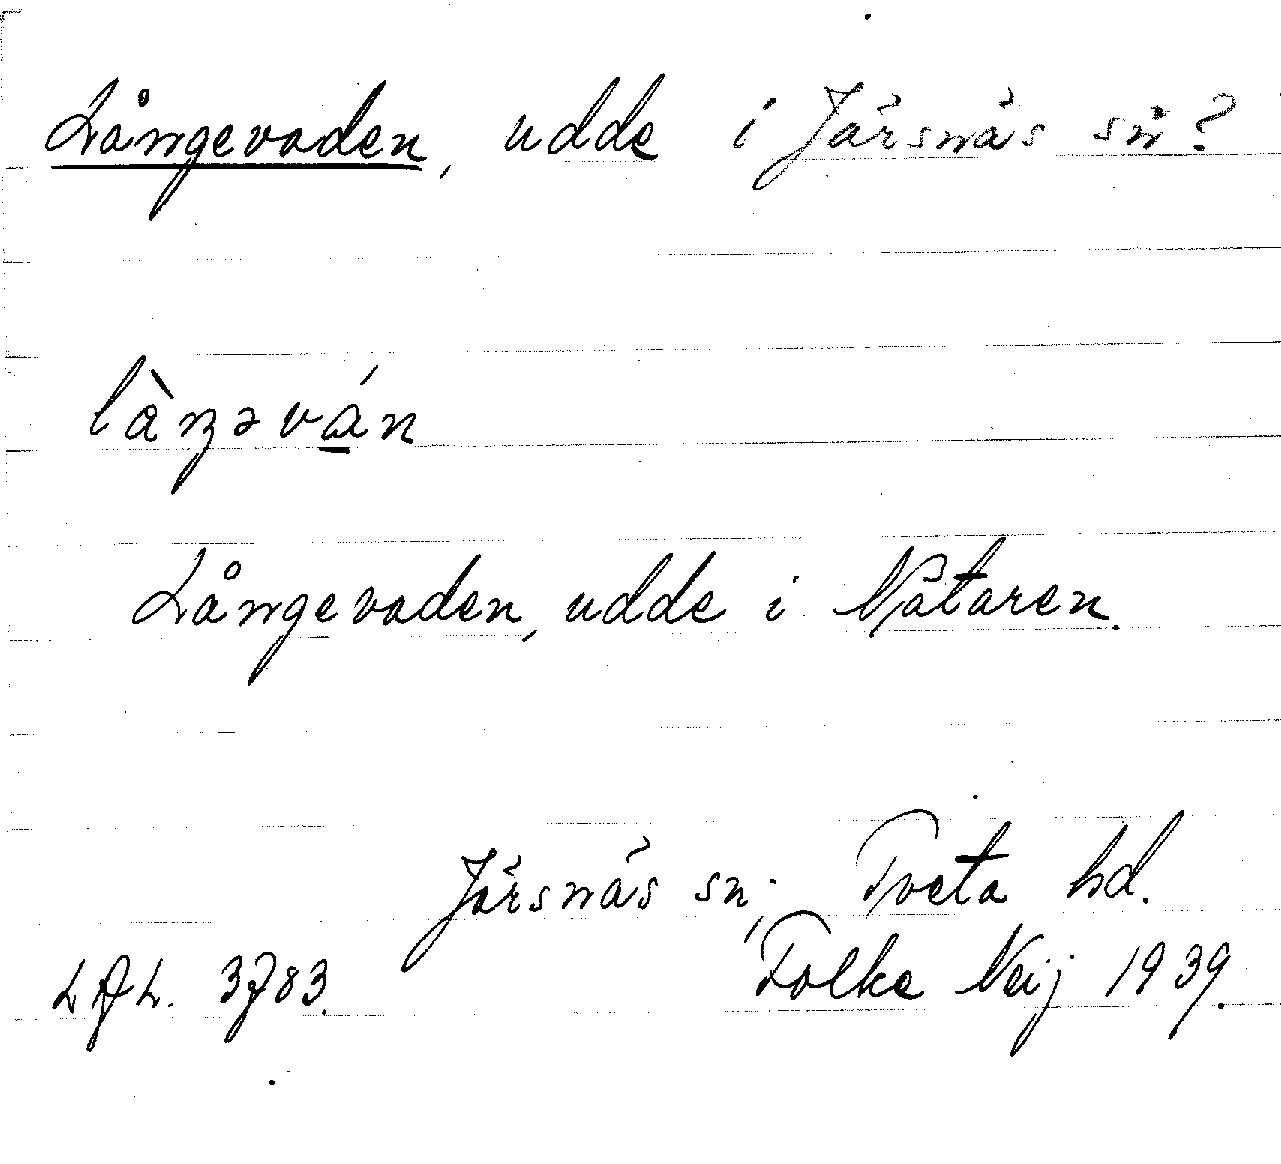 Långevaden, udde i Järsnäs sn?
làŋəván
Långevaden, udde i Nätaren.
Järsnäs sn; Tveta hd.
LAL. 3783. Folke Neij 1939.